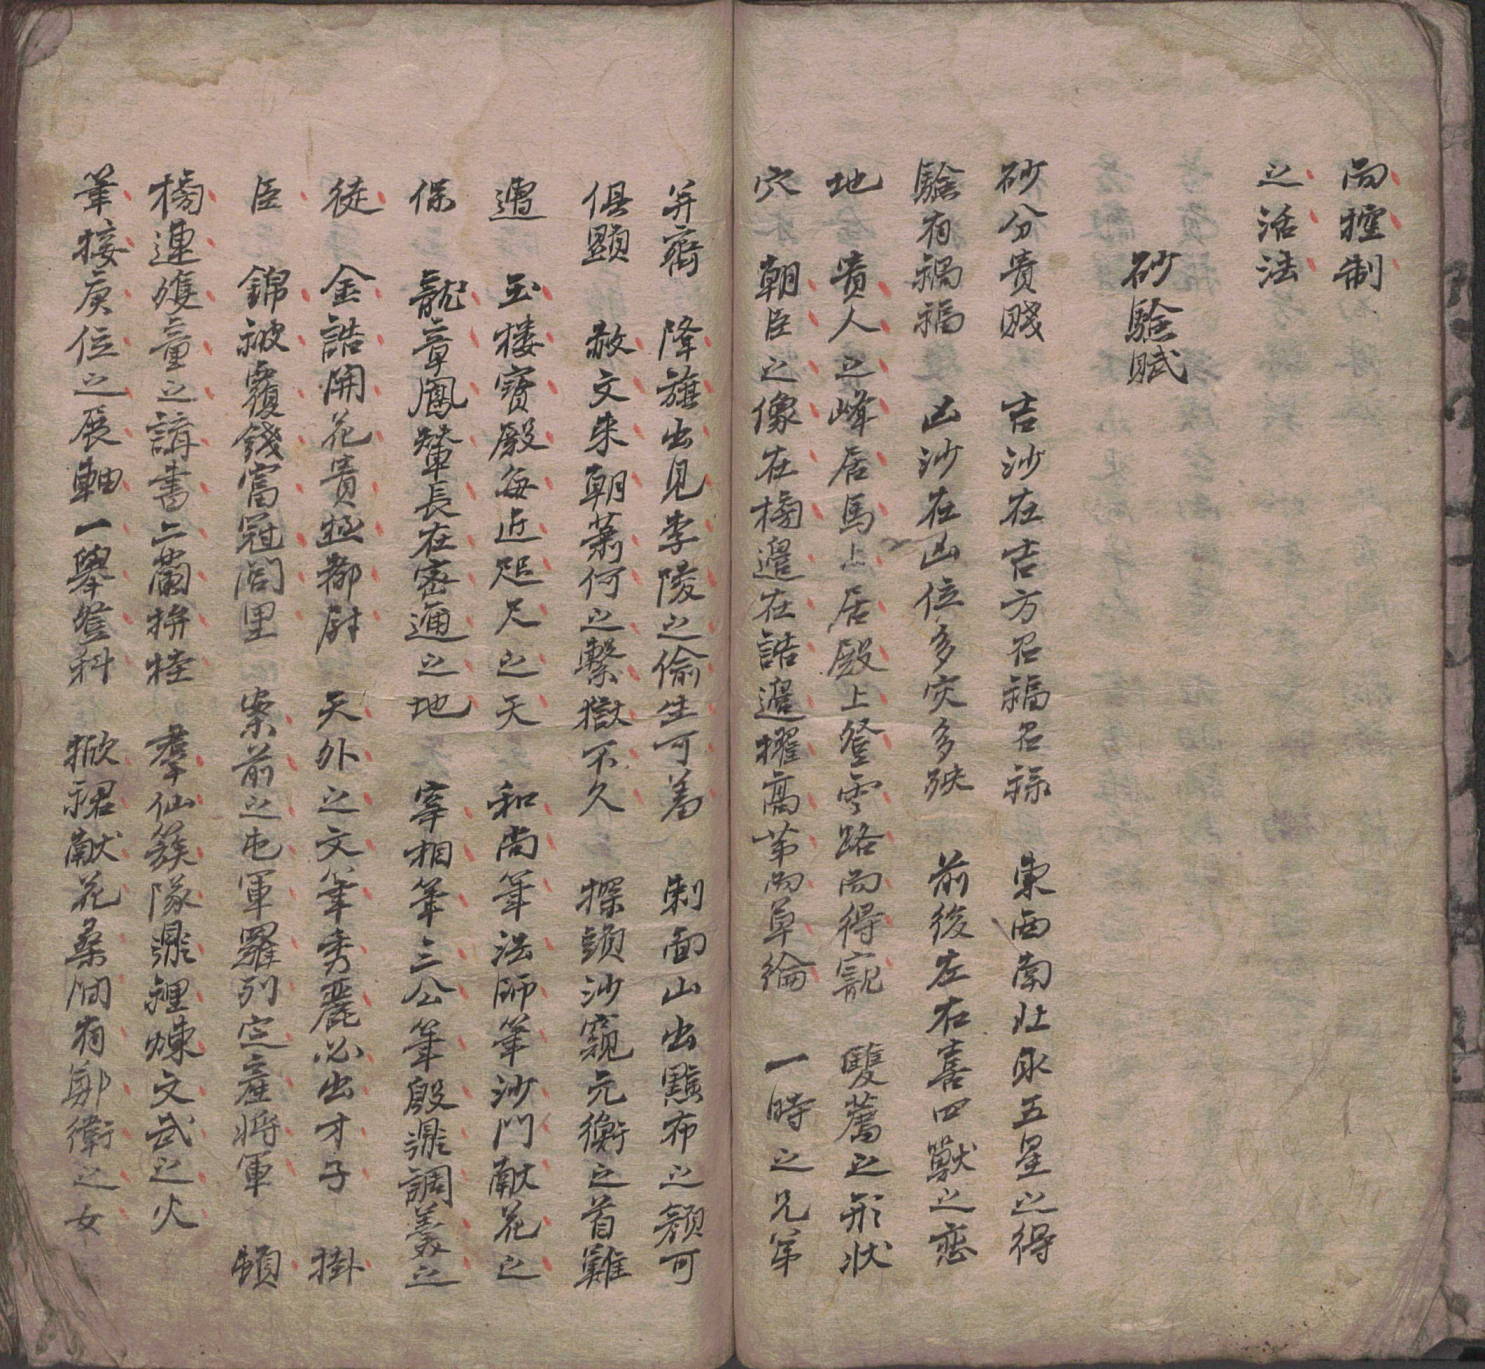 而控制
之活法
砂驗賦
砂分貴賤　吉沙在吉方召福召祿　東西南北永五星之得
驗有禍福　凶沙在凶位多灾多殃　前後左右喜四獸之恋
地　貴人之峰居馬上居殿上登雲路而得寵　雙薦之形狀
穴　朝臣之像在榜邉在誥邉擢高苐而草綸　一時之兄苐
并齊　降旗出見李陵之偷生可羞　刺面山出黥布之顏可
俱顯　赦文来朝蕭何之繫獄不久　探頭沙窺元衡之首難
遭　玉楼寳殿每近咫尺之天　和尚筆法師筆沙門献花之
保　龍章鳳輦長在密邇之地　宰相筆三公筆殷鼎調羹之
徒　金誥開花貴極都尉　天外之文筆秀麗必出才子　掛
臣　錦被覆錢富冠閭里　案前之屯軍羅列定産將軍　頓
榜連雙童之講書二蘭攀桂　羣仙簇隊鼎鯉煉文武之火
筆接庚位之展軸一舉登科　掀裙献花桑间有鄭衛之女